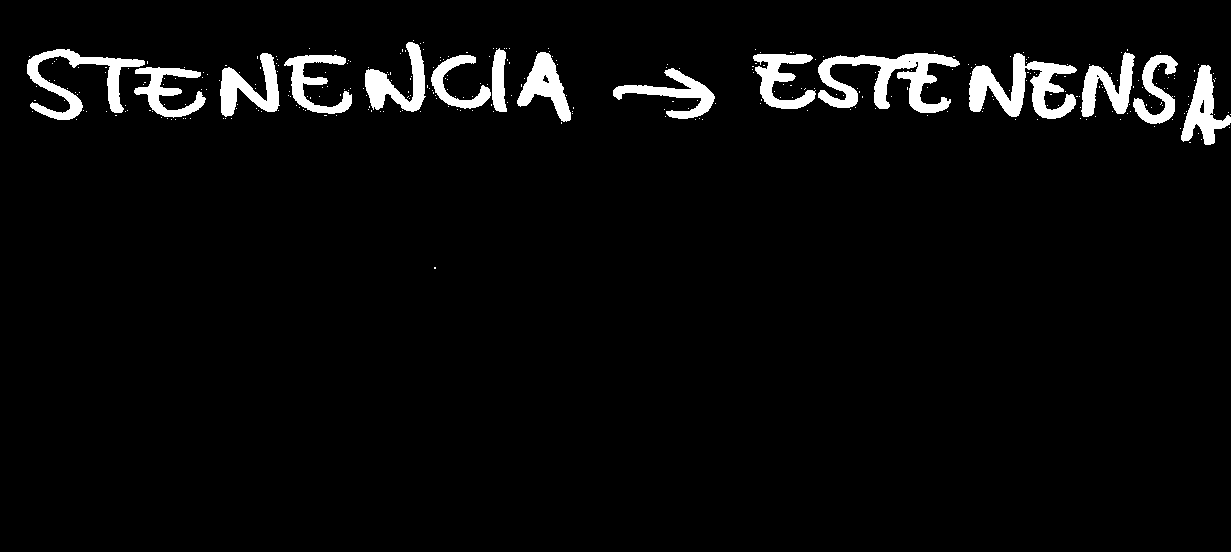 STENENCIA → ESTENENSA